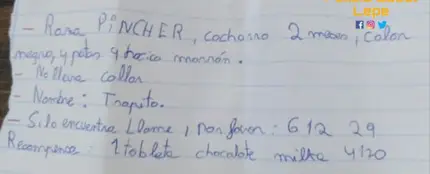 Lepe
- Raza PINCHER, cachorro 2 meses, color
negro, y patas y hocico marrón.
- No lleva collar
- Nombre: Trapito.
- Si lo encuentra llame, por favor: 612 29
Recompensa: 1 tableta chocolate milka 4120